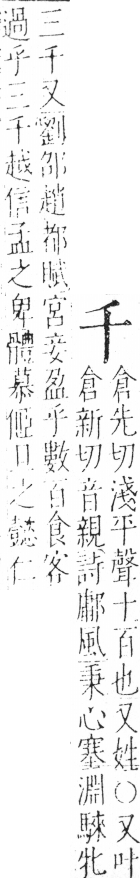 千
倉先切淺平聲十百也又姓○又叶
倉新切音親詩鄘風秉心塞淵騋牝
三千又劉邵趙都賦宮妾盈乎數百食客
過乎三千越信孟之卑體慕之懿仁